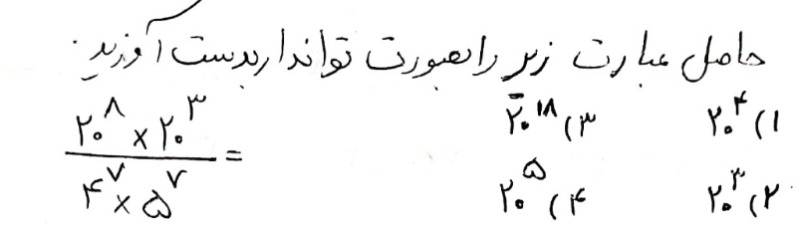 حاصل عبارت زیر را بصورت تواندار بدست آورید:
۱) ۲۰^۴ ۳) ۲۰^۱۸
۲) ۲۰^۳ ۴) ۲۰^۵
(۲۰^۸ × ۲۰^۳) / (۴^۷ × ۵^۷) =